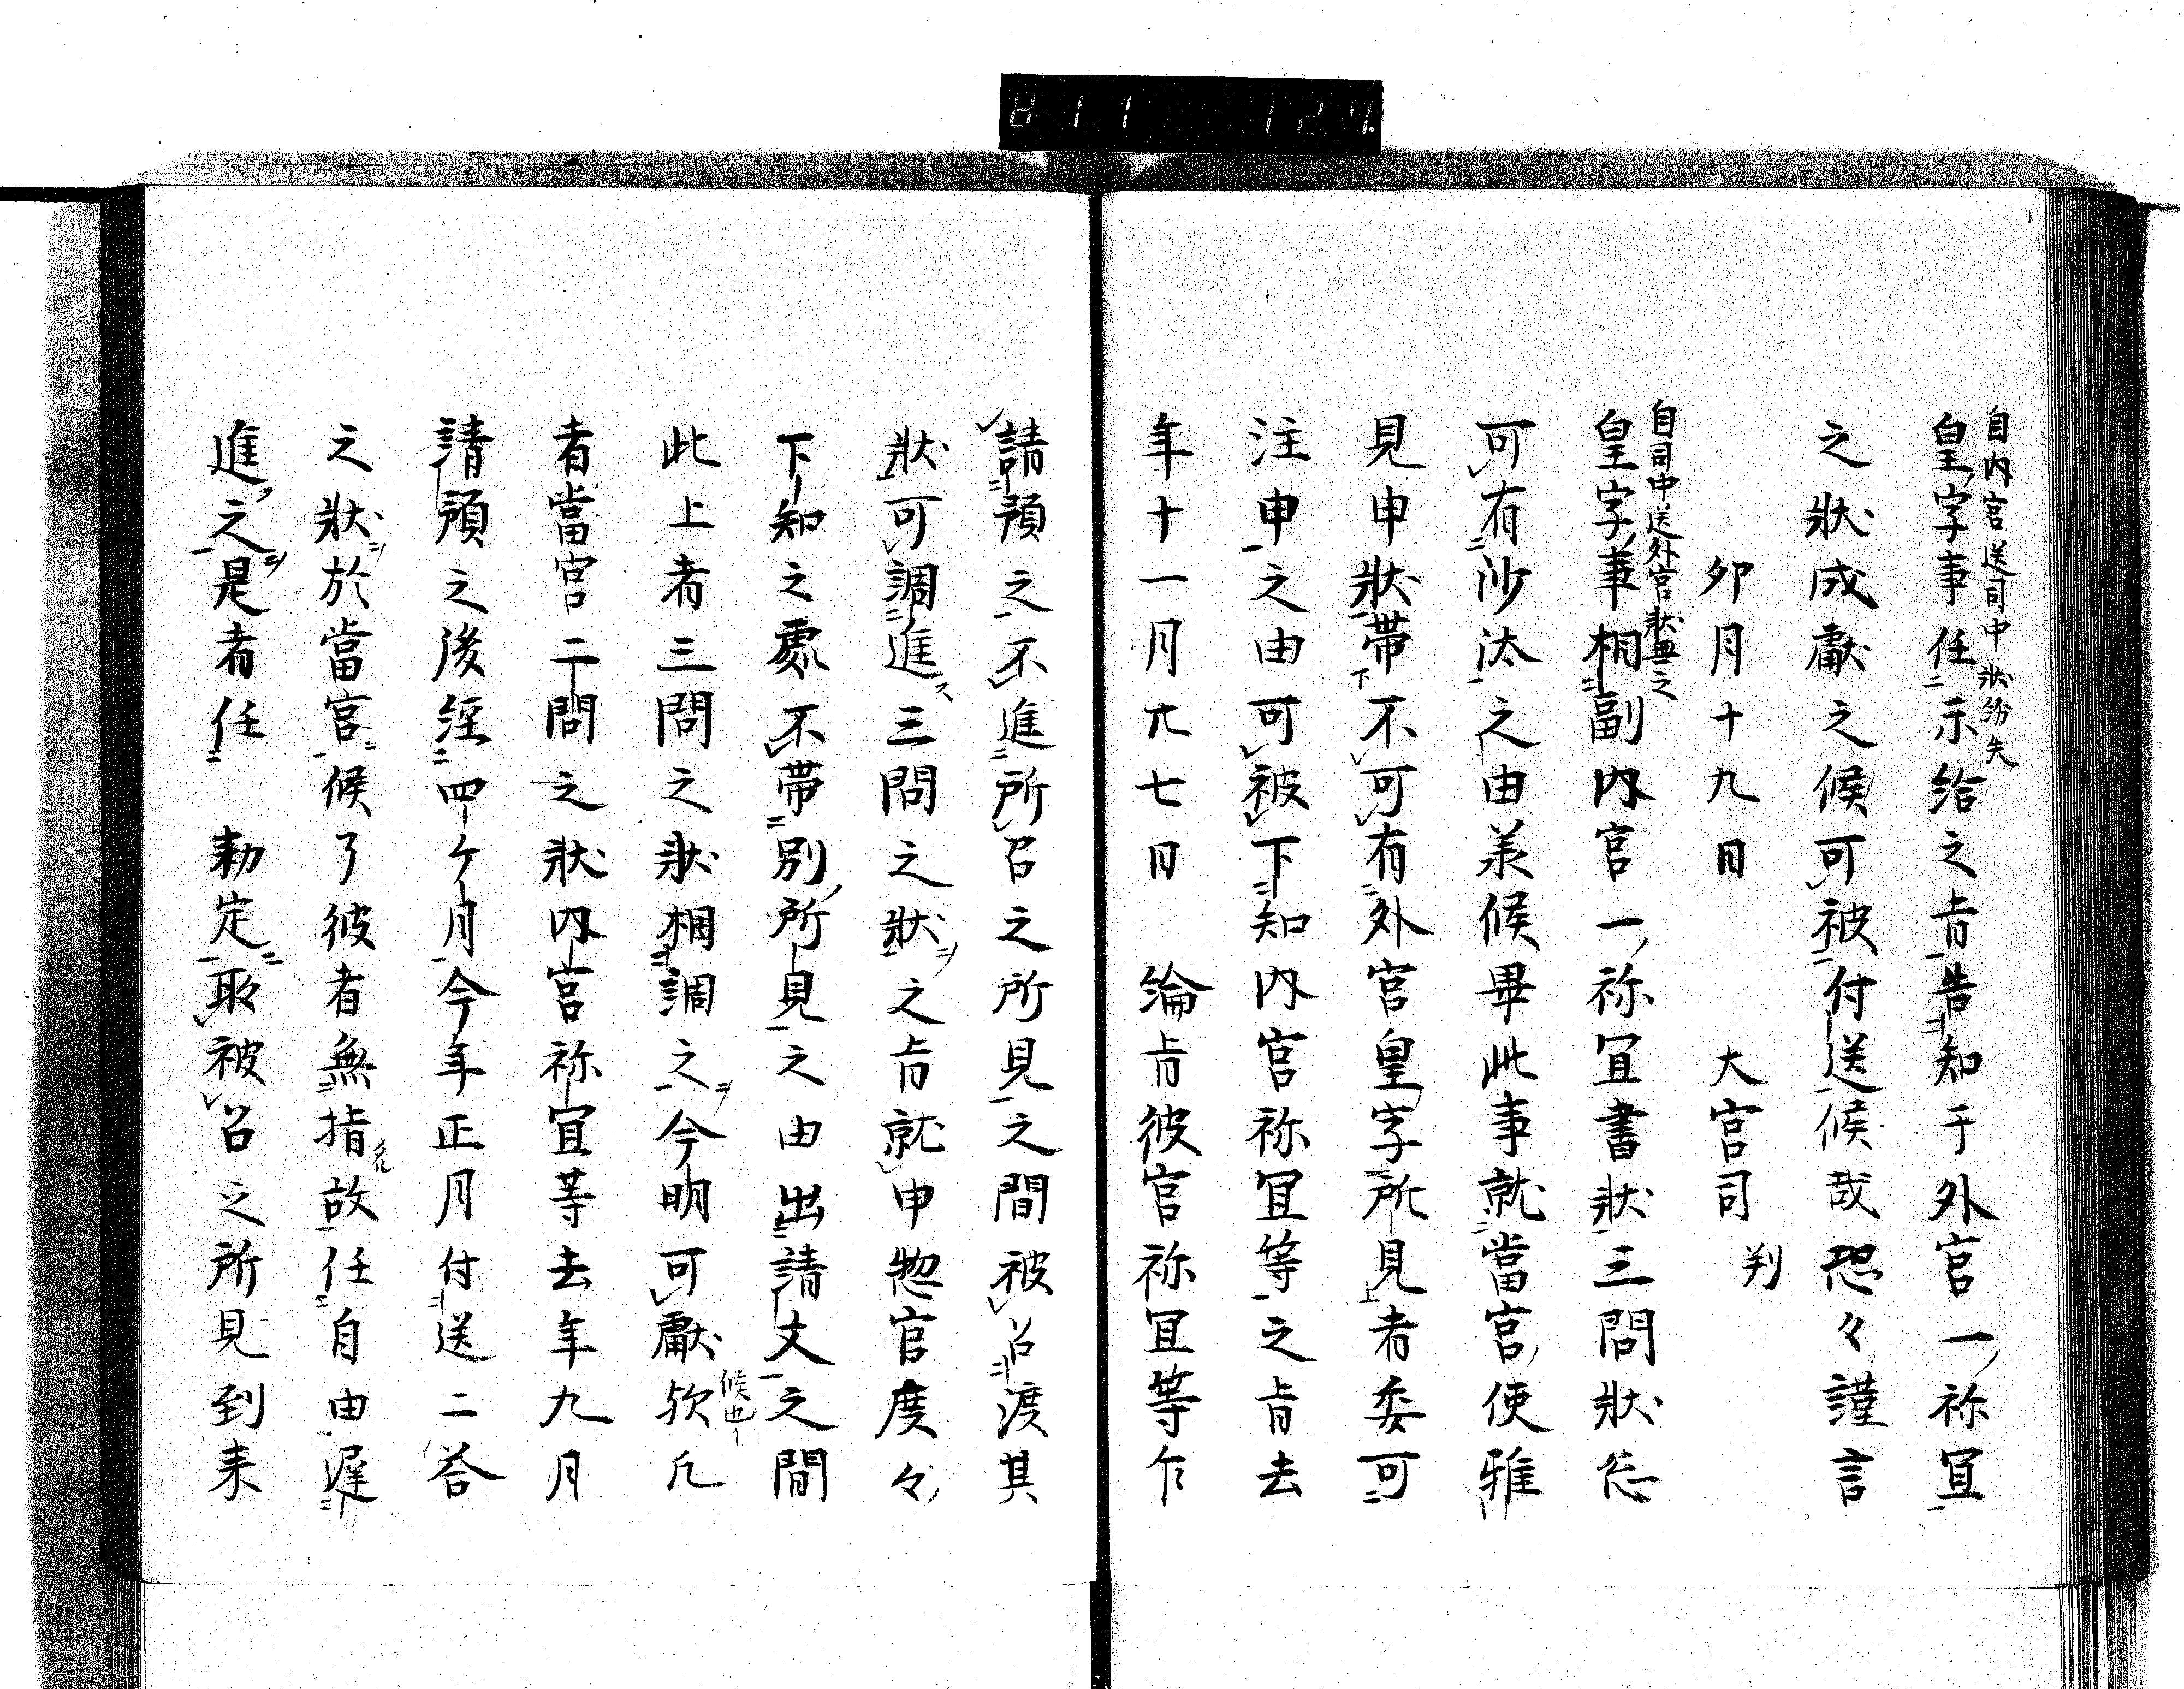 811 127
自内宮送司中状紛失
皇字事任示給之旨告知于外宮一祢冝
之状成獻之候可被付送候哉恐々謹言
卯月十九日　　大宮司　判
自司中送外宮状無之
皇字事相副内宮一祢冝書状三問状忩
可有沙汰之由羕候畢此事就當宮使雅
見申状帯不可有外宮皇字所見者委可
注申之由可被下知内宮祢冝等之旨去
年十一月廿七日　綸旨彼官祢冝等乍
請預之不進所召之所見之間被召渡其
状可調進三問之状之旨就申惣官度々
下知之處不帯別所見之由出請文之間
此上者三問之状相調之今明可獻欤凢
候也
者當宮二問之状内宮祢冝等去年九月
請預之後経四ケ月今年正月付送二荅
之状於當宮候了彼者無指故任自由遅
進之是者任　勅定取被召之所見到来